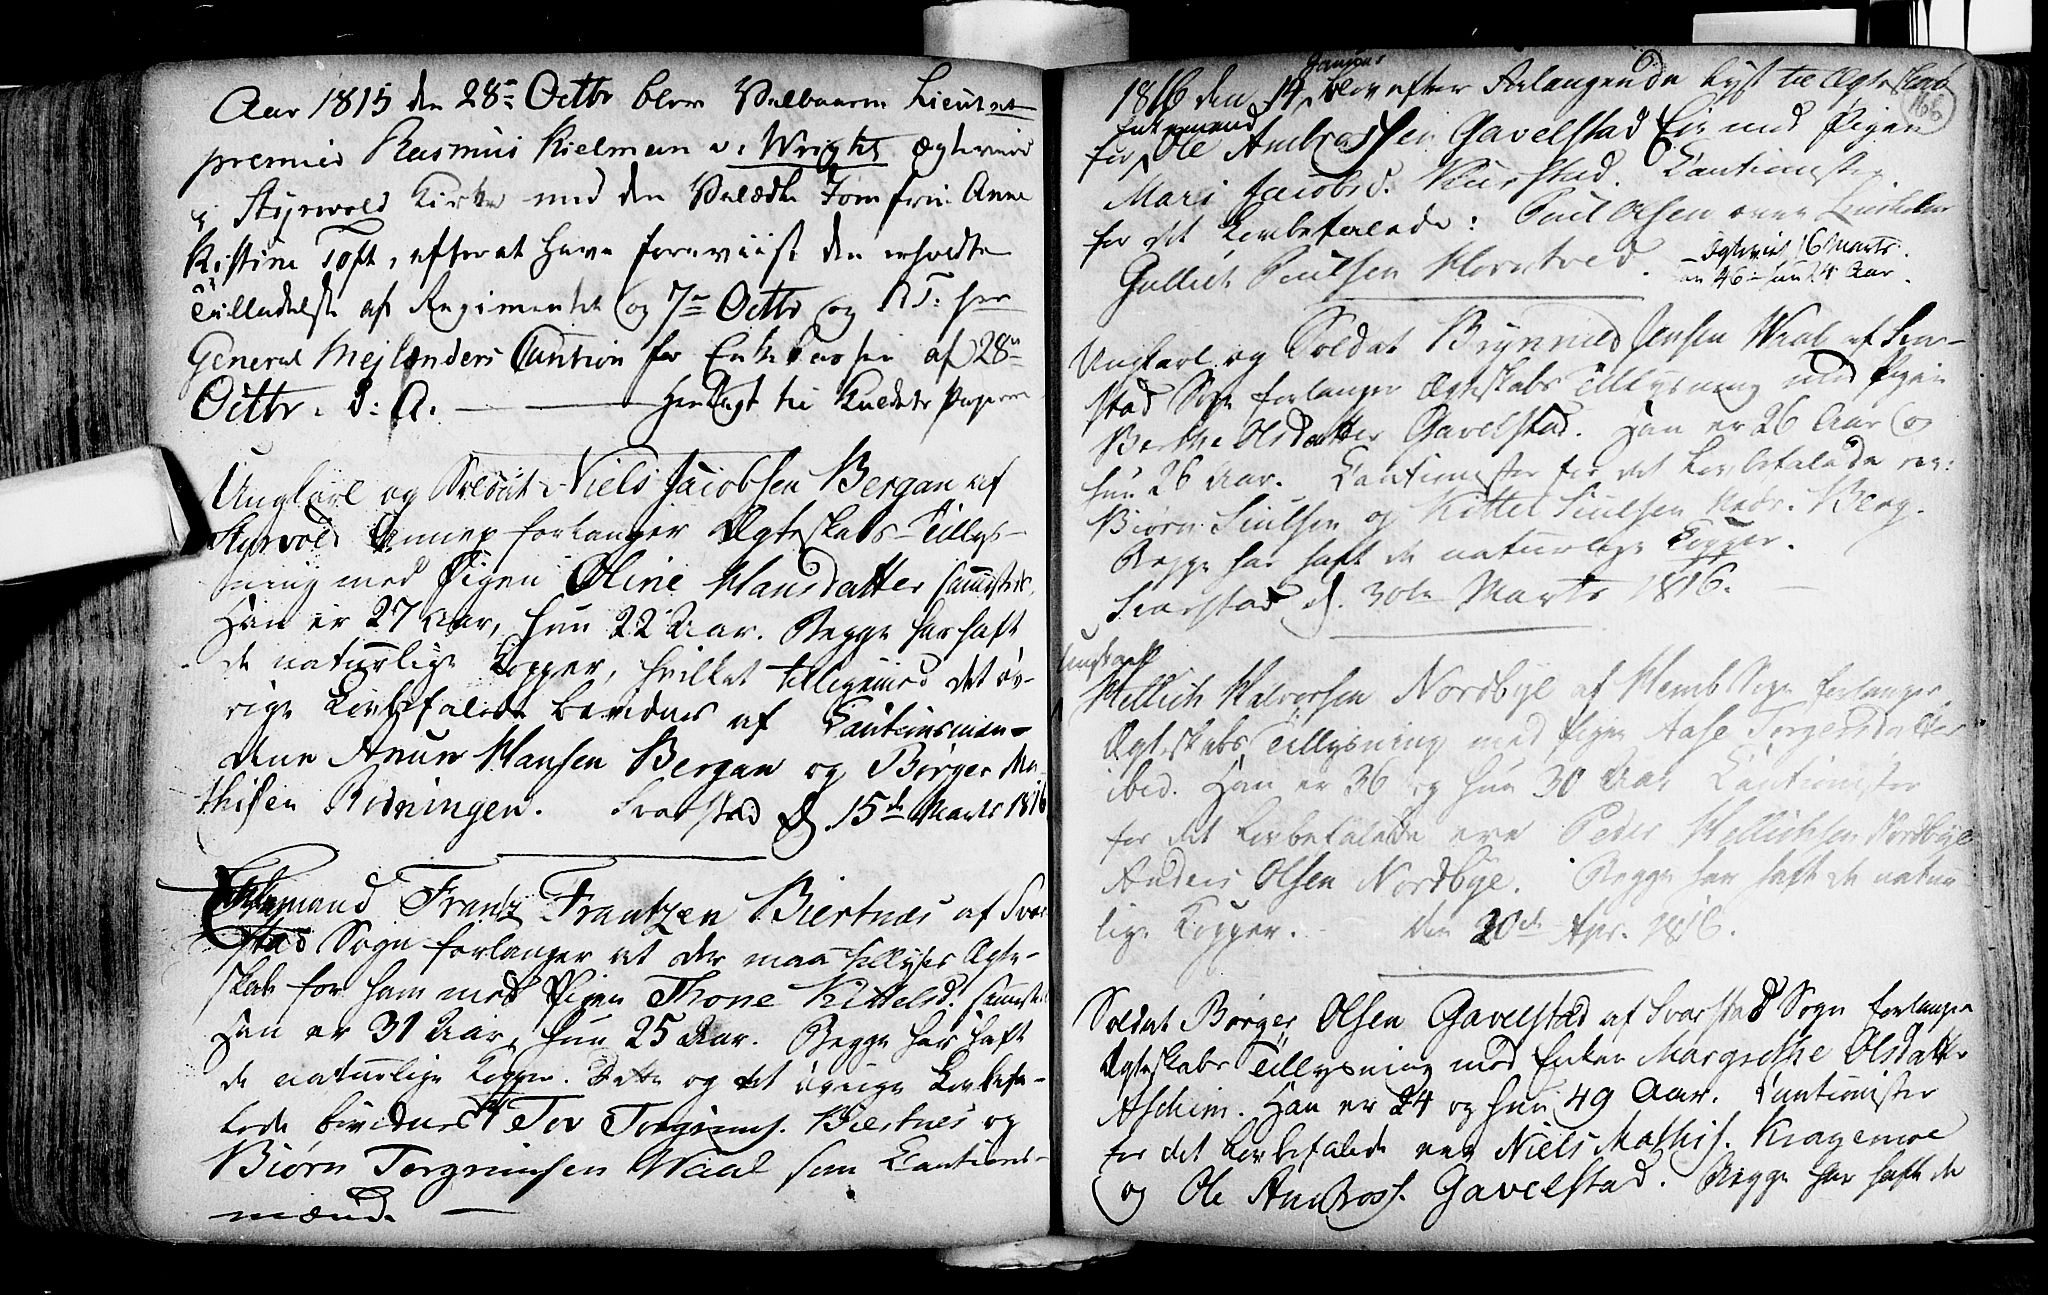 Aar 1815 den 28de Octbr blev Velbaarne Lieutnt
premier Rasmus Kielman v: Wright Ægteviet
i Styrvold Kirke med den Velædle Jomfru Anne
Kistine Toft, efter at have foreviist den erholdte
Tilladelse af Regimentet og 7de Octbr og
General Mejlænders Caution for Enke Cassen af 28de
Octbr. d: A. — Henlagt til Kaldets Papirer
Ungkarl og Soldat Niels Jacobsen Bergan af
Styrvold Annex forlanger Ægteskabs-Tillys-
ning med Pigen Oline Hansdatter sammesteds.
Han er 27 Aar, hun 22 Aar. Begge har haft
de naturlige Kopper, hvilket tilligemed det øv-
rige Lovbefalede bevidnes af Cautionsmæn-
dene Anun Hansen Bergan og Börger Ma-
thisen Risningen. Svarstad d. 15de Marts 1816
Enkemand Frantz Frantzen Biertnæs af Svar
stad Sogn forlanger at der maa tillyses Ægte-
skab for ham med Pigen Thone Kittelsd. sammest.
Han er 31 Aar, hun 25 Aar. Begge har haft
de naturlige Kopper. Dette og det övrige Lovbefa-
lede bevidnes af Tov Torgrims. Biertnes og
Biörn Torgrimsen Waal som Cautions-
mænd. —
168
Januar
1816 den 14, blev efter Forlangende lyst til Ægteskab
Enkemand
for Ole Ambrossen Gavelstad Eie med Pigen
Mari Jacobsd. Cautionister
for det Lovbefalede: Poul Olsen
Gullich Poulsen Horntved. Ægteviet 16 Marts.
han 46 - hun 24 Aar.
Ungkarl og Soldat Brynnild Jensen Waal af Svar-
stad Sogn forlanger Ægteskabs Tillysning med Pigen
Berthe Olsdatter Gavelstad. Han er 26 Aar og
hun 26 Aar. Cautionister for det Lovbefalede ere:
Biörn Siulsen og Kittel Siulsen Nedr. Berg.
Begge har haft de naturlige Kopper.
Svarstad d. 30te Marts 1816. —
Ungkarl
Hellich Halvorsen Nordbye af Hemb Sogn forlanger
Ægteskabs Tillysning med Pigen Aase Torgersdatter
ibid. Han er 36 og hun 30 Aar Cautionister
for det Lovbefalede ere Peder Hellichsen Nordbye
Anders Olsen Nordbye. Begge har haft de natur
lige Kopper. den 20de Apr. 1816.
Soldat Börger Olsen Gavelstad af Svarstad Sogn forlanger
Ægteskabs Tillysning med Enken Margrethe Olsdatter
Aschim. Han er 24 og hun 49 Aar. Cautionister
for det Lovbefalede ere Niels Mathis. Kragemoe
og Ole Ambross. Gavelstad. Begge har hafte de